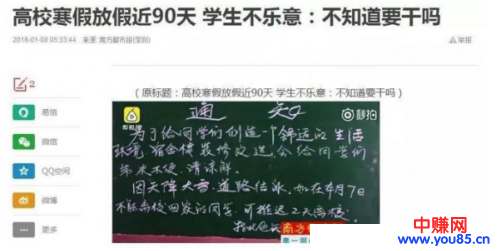 高校寒假放假近90天 学生不乐意：不知道要干吗
2018-01-08 05:33:44 来源: 南方都市报(深圳)
举报
2
易信
微信
QQ空间
微博
更多
（原标题：高校寒假放假近90天 学生不乐意：不知道要干吗）
秒拍
通 知
为了给同学们创造一个舒适的生活
环境,宿舍楼装修改造,会给同学们
带来不便,请谅解。
因天降大雪,道路结冰,如在1月7日
不能离校回家的同学,可推迟2天离校。
南方
第一
中赚网
www.you85.cn